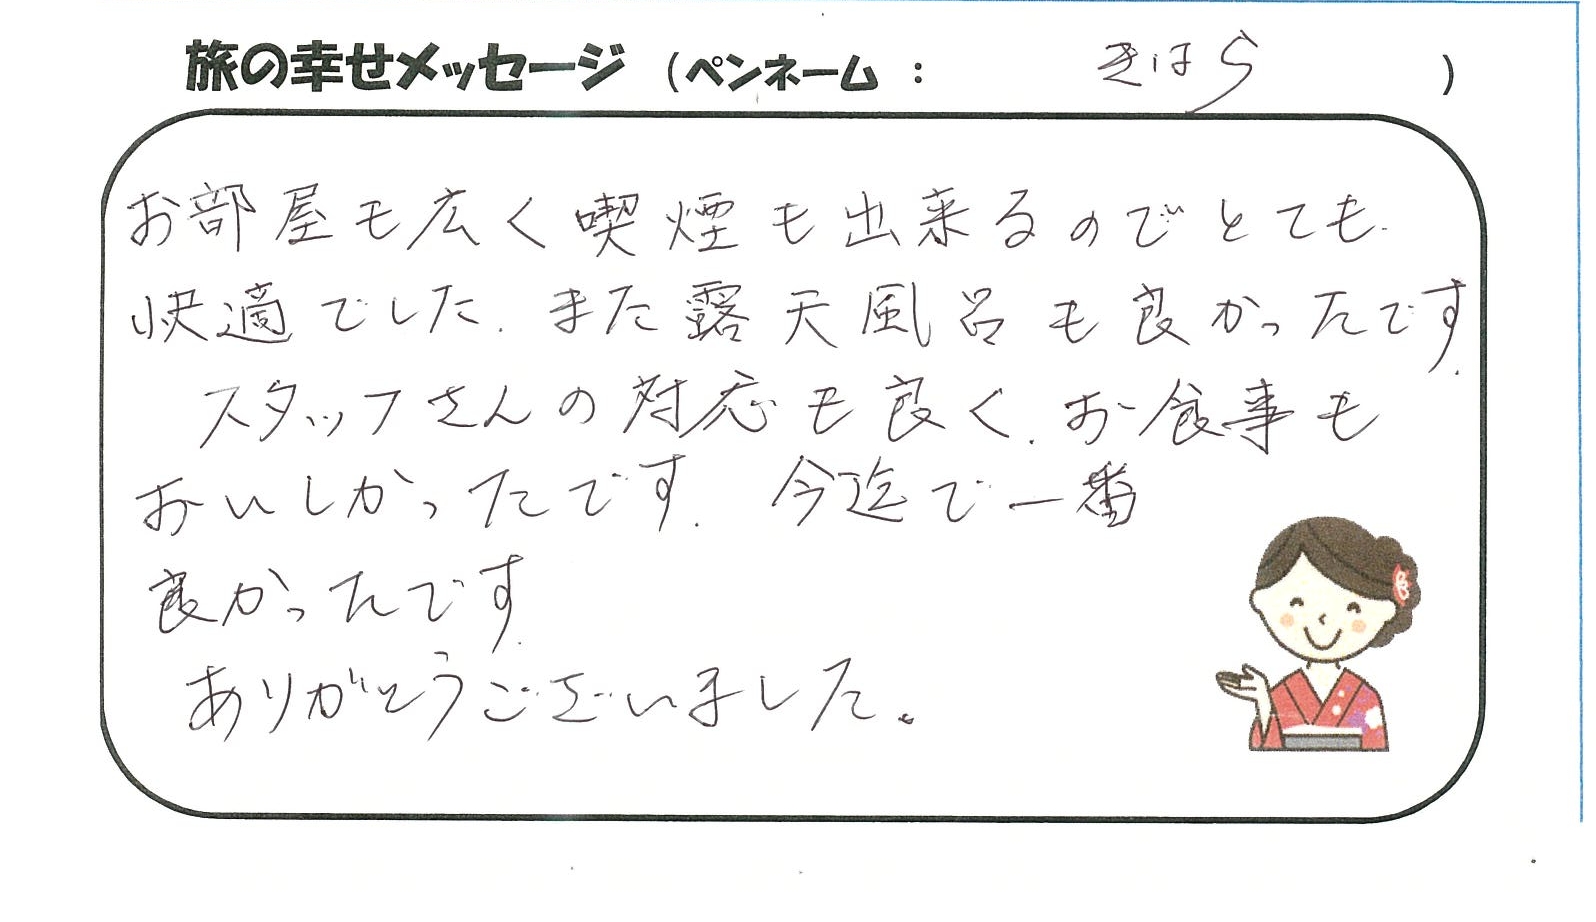 旅の幸せメッセージ（ペンネーム：きはら）
お部屋も広く喫煙も出来るのでとても
快適でした。また露天風呂も良かったです。
スタッフさんの対応も良く、お食事も
おいしかったです。今迄で一番
良かったです。
ありがとうございました。